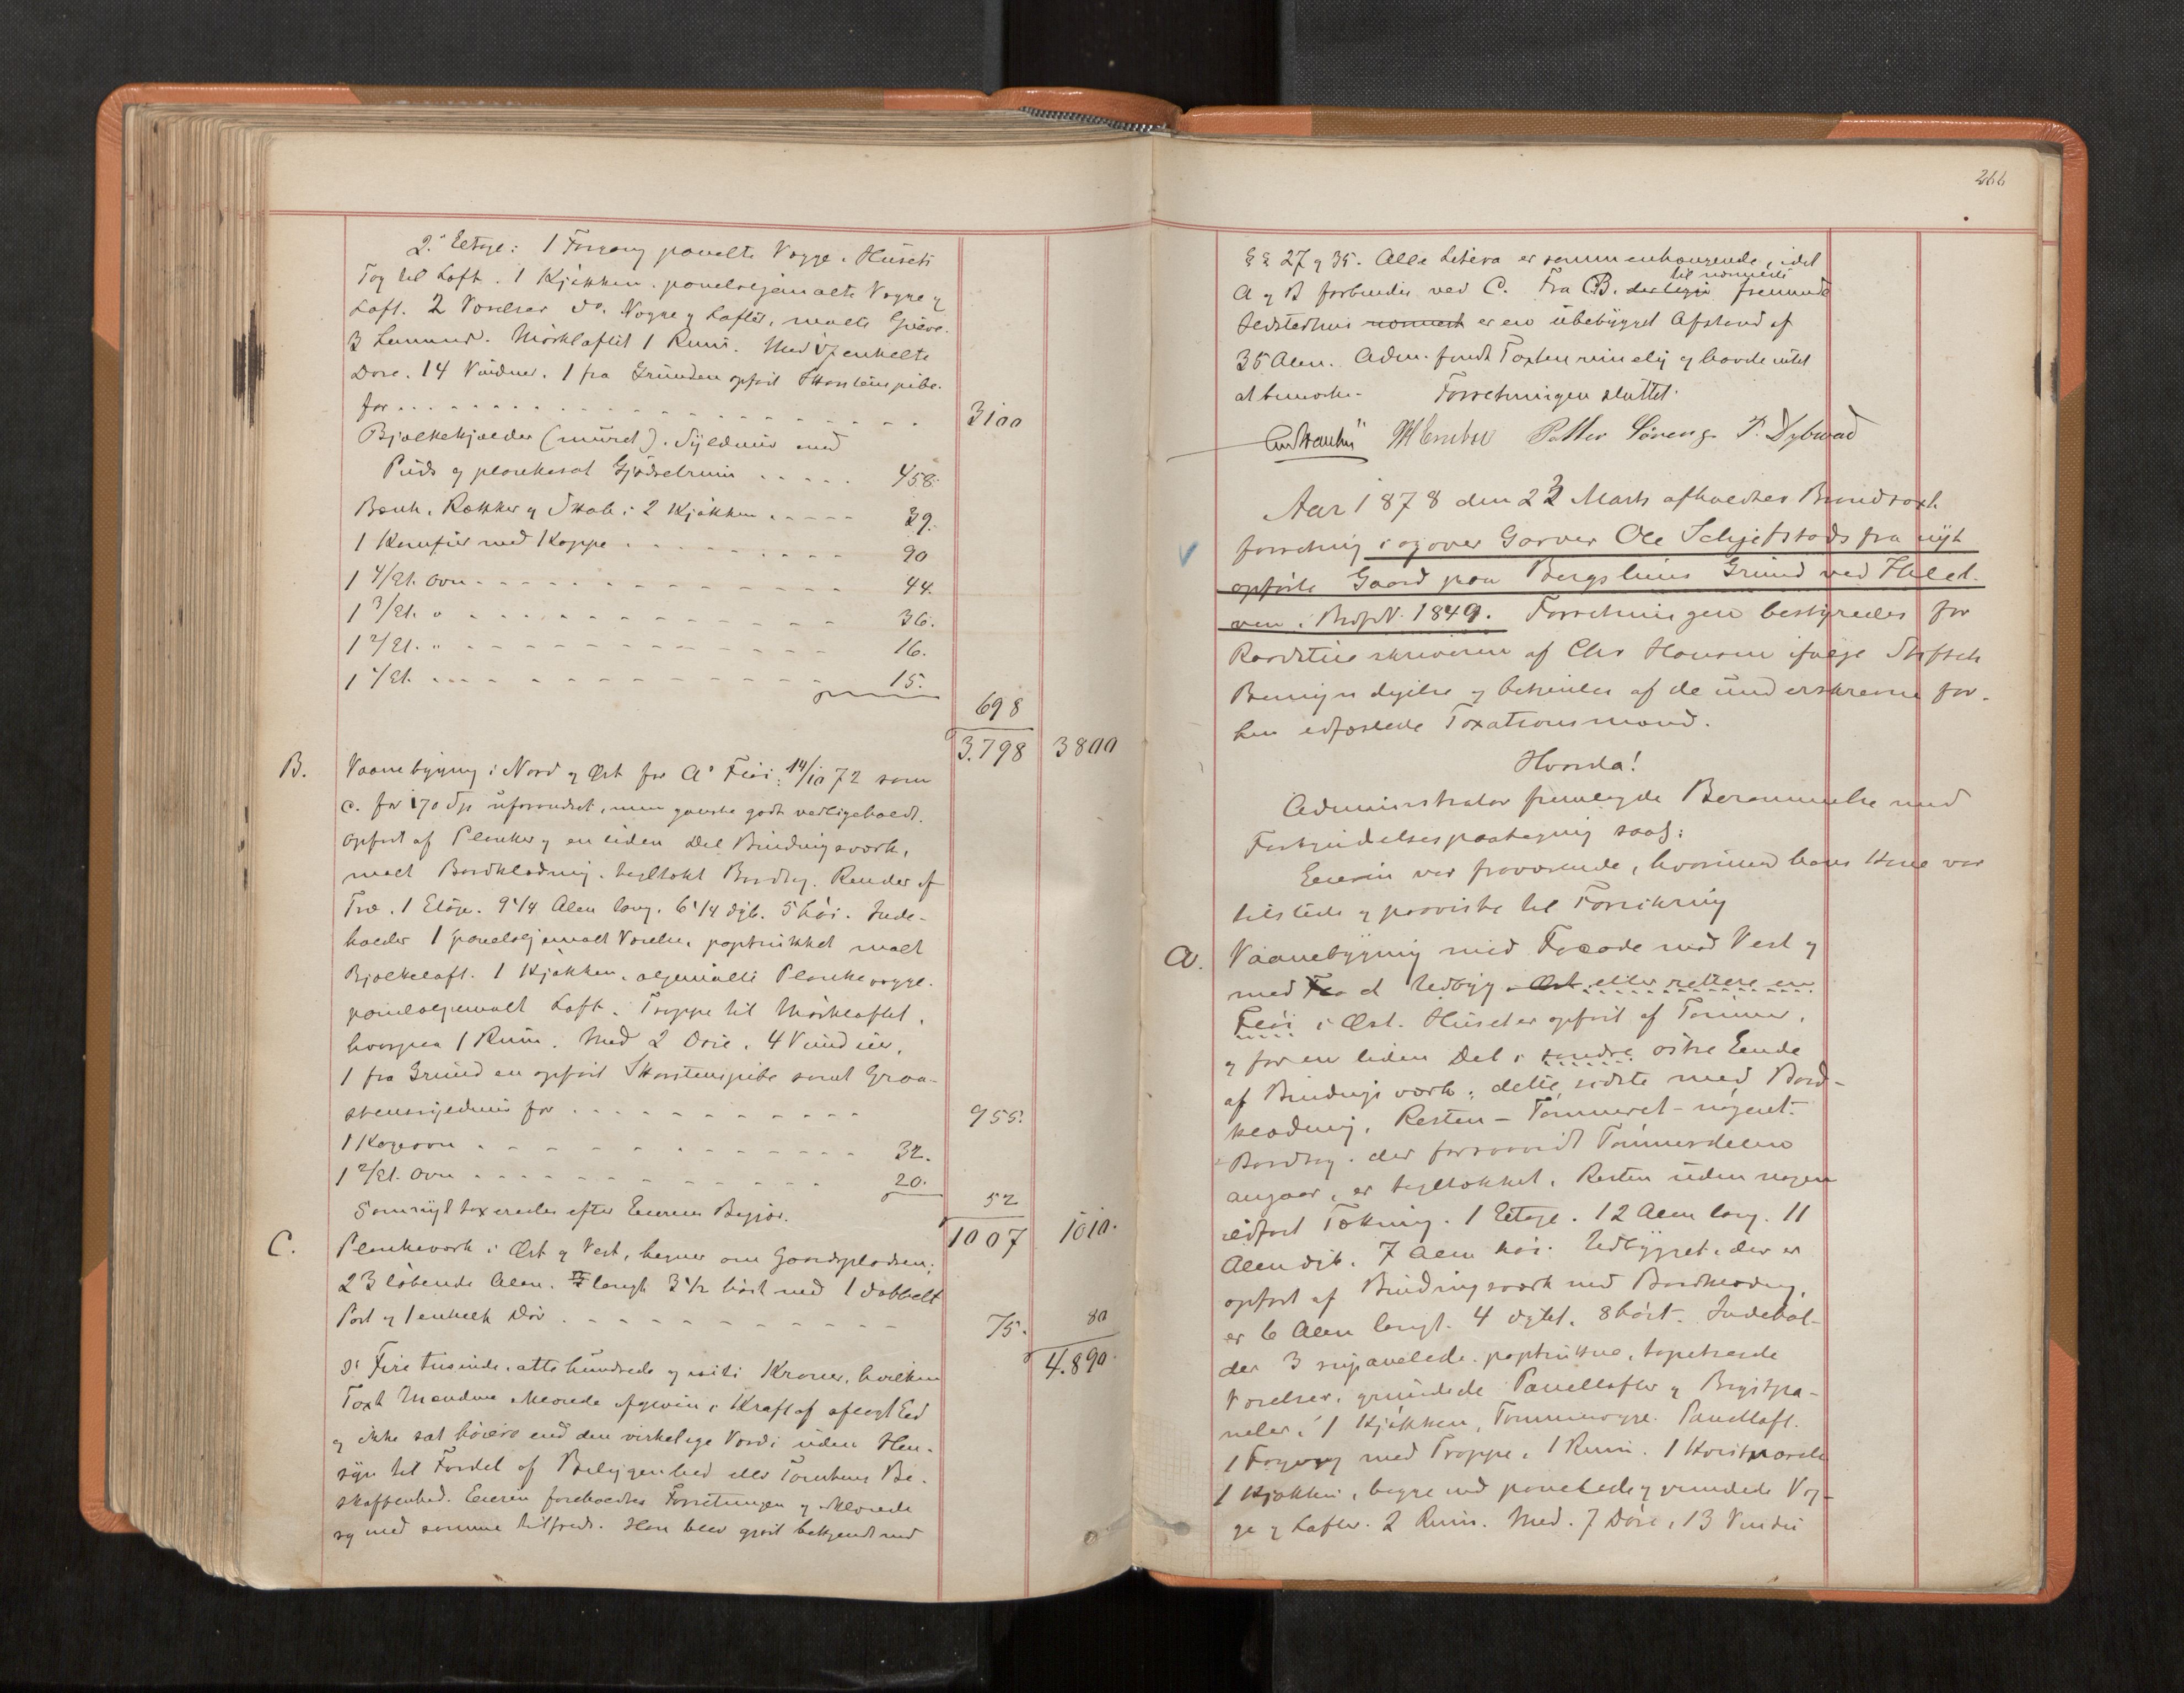 2. Etage: 1 Forgang panelte Vægge. Husets
Tag til Loft. 1 Kjøkken. paneloljemalte Vægge og
Loft. 2 Værelser do. Vægge og Lofter, malte Gulve.
3 Lemmer. Mørkloftet 1 Rum. Med 17 enkelte
Døre. 14 Vinduer. 1 fra Grunden opført Skorstenspibe.
for . . . 3100
Bjælkekjælder (muret). Syldmur med
Puds og plankesat Gjødselrum . . . 458.
Bænk, Rækker og Skab i 2 Kjøkken . . . 39.
1 Komfur med Kappe . . . 90
1 4/Et. Ovn . . . 44.
1 3/Et. " . . . 36.
1 2/Et. " . . . 16.
1 1/Et. . . . 15.
698
3.798 3800
B. Vaanebygning i Nord og Øst for A's Fløi: 14/10 72 som
C. for 170 Spd uforandret, men ganske godt vedligeholdt.
opført af Planker og en liden Del Bindingsværk,
malt Bordklædning, tegltækt Bordtag. Render af
Træ. 1 Etage. 9 1/4 Alen lang. 6 1/4 dyb. 5 høi. Inde-
holder 1 paneloljemalt Værelse, paptrukket malt
Bjælkeloft. 1 Kjøkken, oljemalte Plankevægge.
paneloljemalt Loft. Trappe til Mørkloftet,
hvorpaa 1 Rum. Med 2 Døre. 4 Vinduer,
1 fra Grunden opført Skorstenspibe samt Graa-
stenssyldmur for . . . 955.
1 Kogeovn . . . 32.
1 2/Et. Ovn . . . 20.
52
Som nyt taxeredes efter Eierens Begjær. 1007 1010.
C. Plankeværk i Øst og Vest, hegner om Gaardspladsen;
23 løbende Alen. langt 3 1/2 høit med 1 dobbelt
Port og 1 enkelt Dør . . . 75. 80
4.890.
s: Fire tusinde, otte hundrede og niti Kroner, hvilken
Taxt Mændene erklærede afgiven i Kraft af aflagt Eed
og ikke sat høiere end den virkelige Værdi uden Hen-
syn til Fordel af Beliggenhed eller Tomtens Be-
skaffenhed. Eieren foreholdtes Forretningen og erklærede
sig med samme tilfreds. Han blev gjort bekjendt med
266
§§ 27 og 35. Alle Litera er sammenhængende, idet
A og B forbindes ved C. Fra B. til nærmeste fremmede
Ildstedhus nærmest er en ubebygget Afstand af
35 Alen. Adm. fandt Taxten rimelig og havde intet
at bemærke. Forretningen sluttet.
Petter Søreng. P. Dybwad
Aar 1878 den 22 Marts afholdtes Brandtaxt
forretning i og over Garver Ole Schjefstads fra nyt
opførte Gaard paa Bergslius Grund ved Ihlel-
ven, BrdpN. 1849. Forretningen bestyredes for
Raadstueskriveren af Chr Hansen ifølge Stiftets
Bemyndigelse og betjentes af de underskrevne for-
hen edfæstede Taxationsmænd.
Hvorda!
Administrator fremlagde Berammelse med
Forkyndelsespaategning saal:
Eieren var fraværende, hvorimod hans Kone var
tilstede og paaviste til Forsikring
A. Vaanebygning med Facade mod Vest og
med et Udbyg Øst eller rettere en
Fløi i Øst. Huset er opført af Tømmer,
og for en liden Del i søndre østre Ende
af Bindingsværk; dette sidste med Bord-
klædning. Resten - Tømmeret - nøgent.
Bordtag, der forsaavidt Tømmerdelen
angaar, er tegltækket, Resten uden nogen
ildfast Tækning. 1 Etage. 12 Alen lang. 11
Alen dyb. 7 Alen høi. Udbygget, der er
opført af Bindingsværk med Bordklædng,
er 6 Alen langt. 4 dybt. 8 høit. Indehol-
der 3 paptrukne, tapetserede
Værelser, grundede Panellofter og Brystpa-
neler, 1 Kjøkken, Tømmervægge. Panelloft.
1 Forgang med Trappe, 1 Rum. 1 Kvistværelse
1 Kjøkken, begge med panelede grundede Væg-
ge og Lofter. 2 Rum. Med 7 Døre, 13 Vinduer